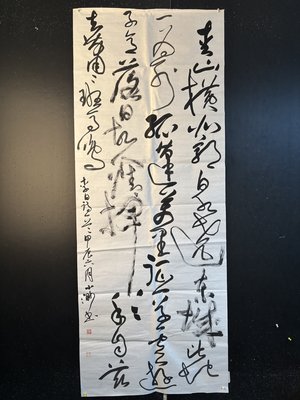 青山橫北郭白水遶東城此地
一為別孤蓬萬里征浮雲遊
子意落日故人情揮手自茲
去蕭〻班馬鳴
李白詩 甲辰六月 书